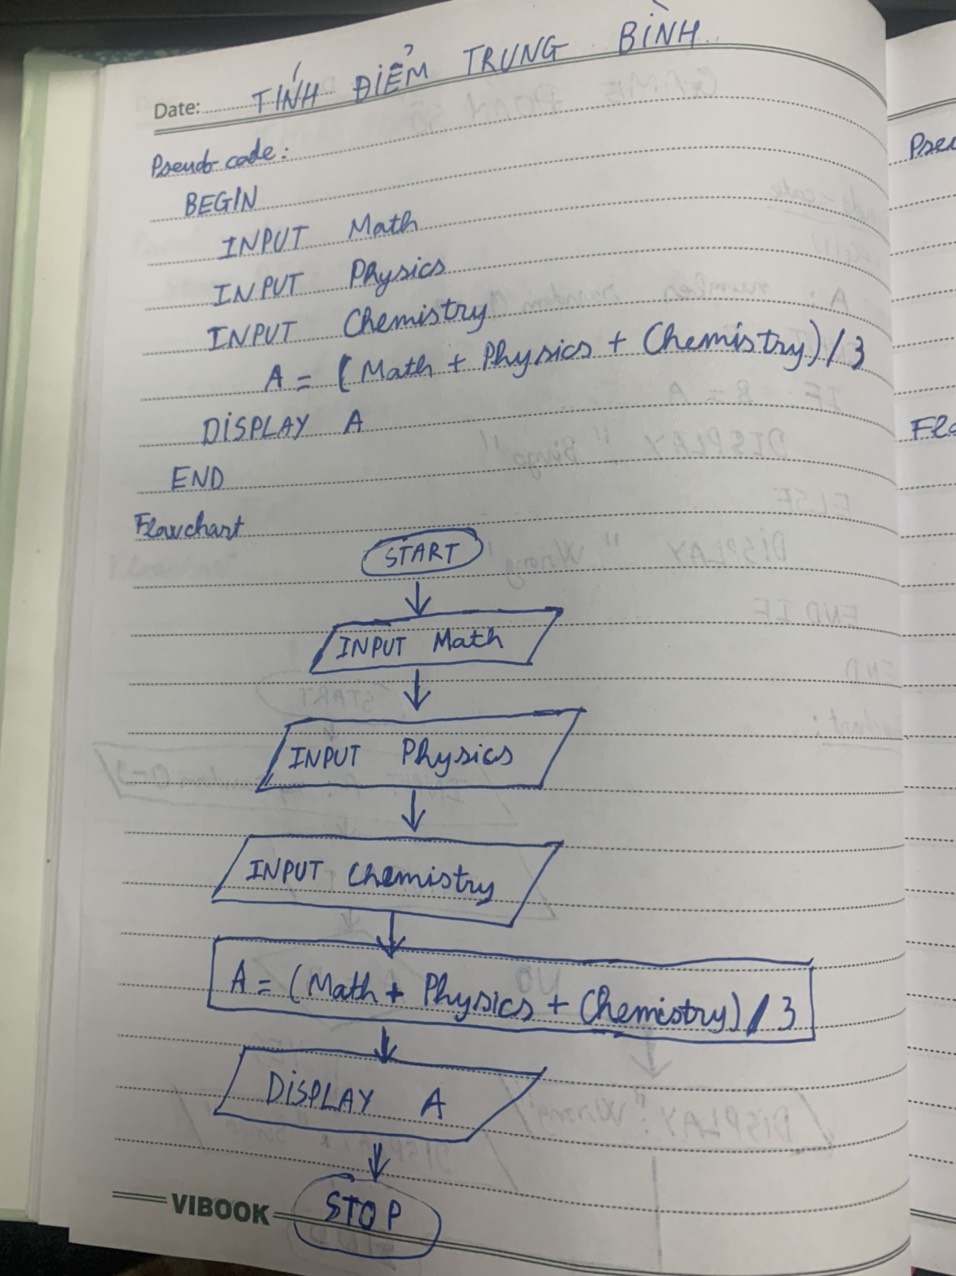 Date: TÍNH ĐIỂM TRUNG BÌNH
Pseudo-code:
BEGIN
INPUT Math
INPUT Physics
INPUT Chemistry
A = (Math + Physics + Chemistry) / 3
DISPLAY A
END
Flowchart
START
INPUT Math
INPUT Physics
INPUT Chemistry
A = (Math + Physics + Chemistry) / 3
DISPLAY A
STOP
VIBOOK